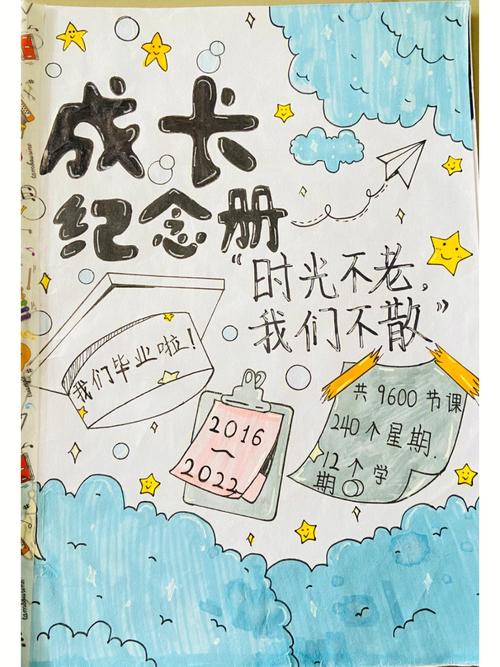 成长
纪念册
“时光不老，
我们不散”
我们毕业啦！
2016
~
2022
共 9600 节课
240 个星期.
12 个学
期